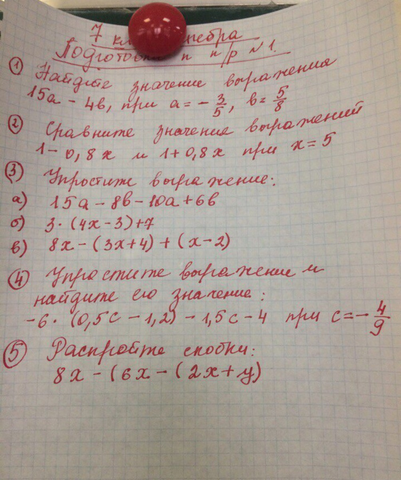 7 класс алгебра
Подготовка к к/р №1.
① Найдите значение выражения
15a - 4b, при a = -3/5, b = 5/8
② Сравните значение выражений
1 - 0,8x и 1 + 0,8x при x = 5
③ Упростите выражение:
а) 15a - 8b - 10a + 6b
б) 3·(4x - 3) + 7
в) 8x - (3x + 4) + (x - 2)
④ Упростите выражение и
найдите его значение:
-6·(0,5c - 1,2) - 1,5c - 4 при c = -4/9
⑤ Раскройте скобки:
8x - (6x - (2x + y)